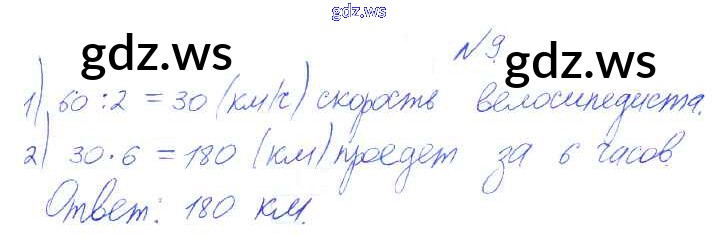 gdz.ws
gdz.ws
gdz.ws
№9.
1) 60:2 = 30 (км/ч) скорость велосипедиста.
2) 30·6 = 180 (км) проедет за 6 часов.
Ответ: 180 км.
gdz.ws